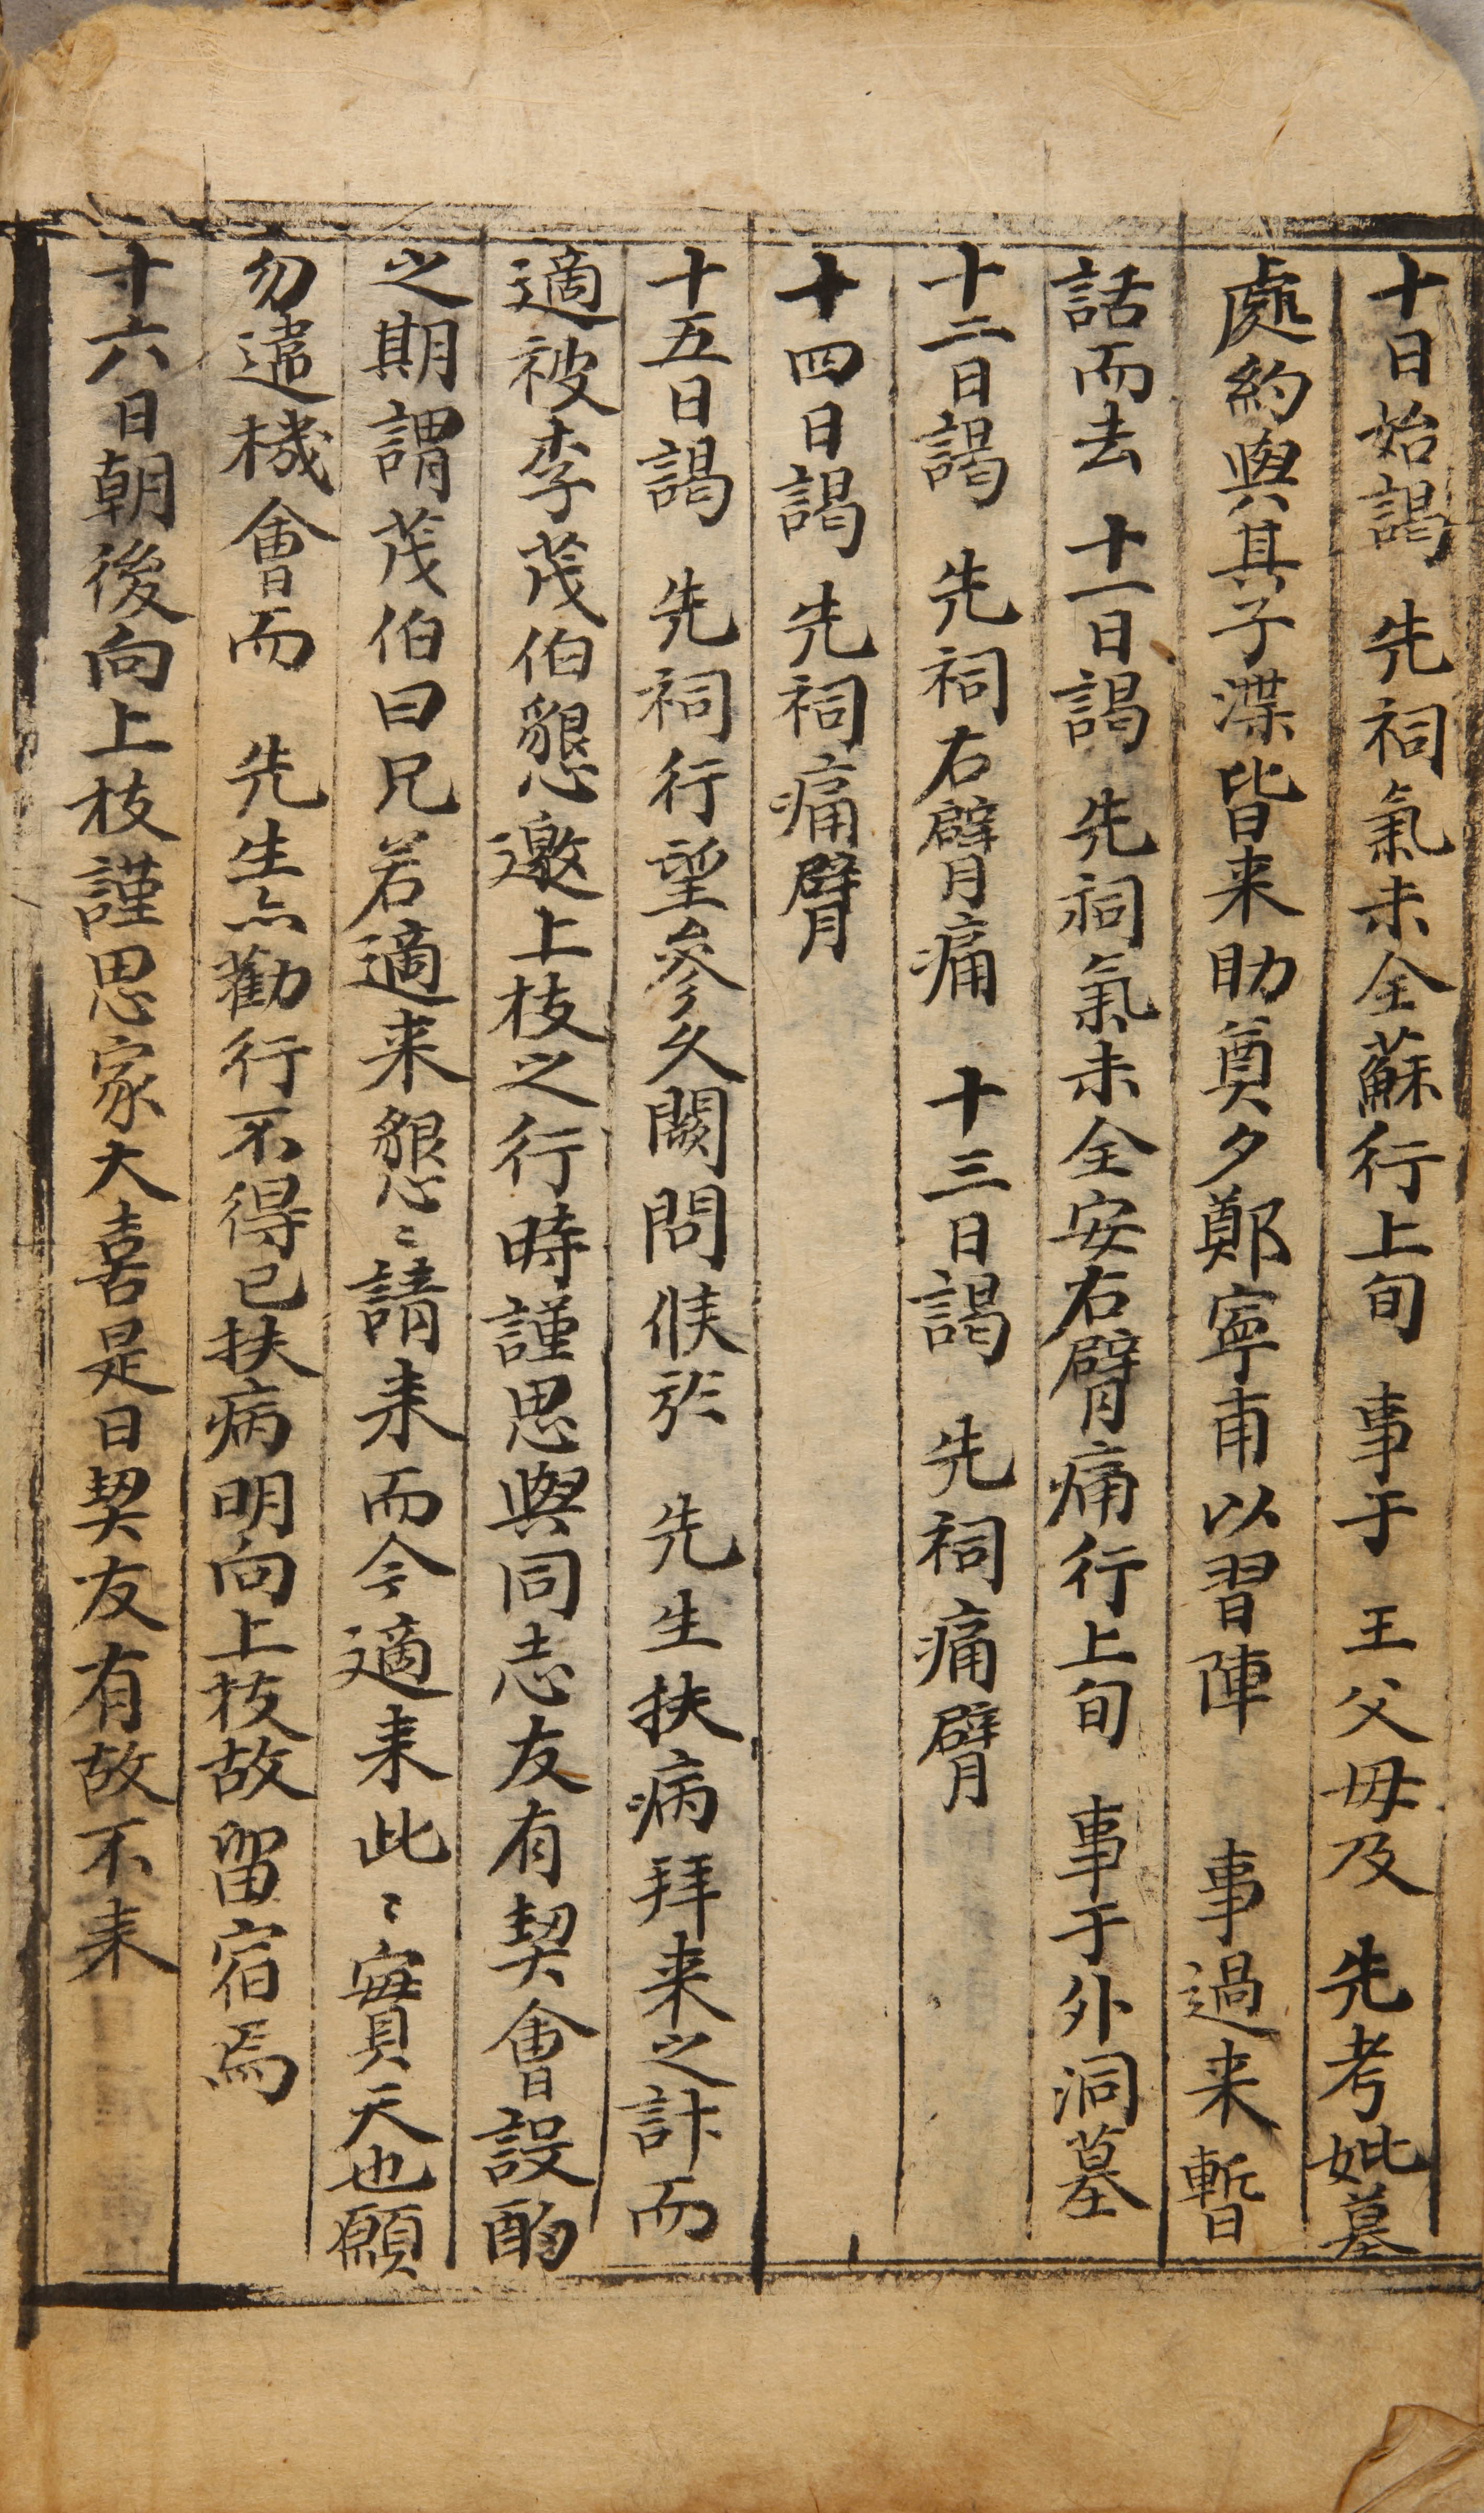 十日始謁 先祠氣未全蘇行上旬 事于 王父母及 先考妣墓
處約與其子渫皆来助奠夕鄭寧甫以習陣 事過来暫
話而去 十一日謁 先祠氣未全安右臂痛行上旬 事于外洞墓
十二日謁 先祠右臂痛 十三日謁 先祠痛臂
十四日謁 先祠痛臂
十五日謁 先祠行望參久闕問候於 先生扶病拜来之計而
適被李茂伯懇邀上枝之行時謹思與同志友有契會設酌
之期謂茂伯曰兄若適来懇〻請来而今適来此〻實天也願
勿違機會而 先生亦勸行不得已扶病明向上枝故留宿焉
十六日朝後向上枝謹思家大喜是日契友有故不来